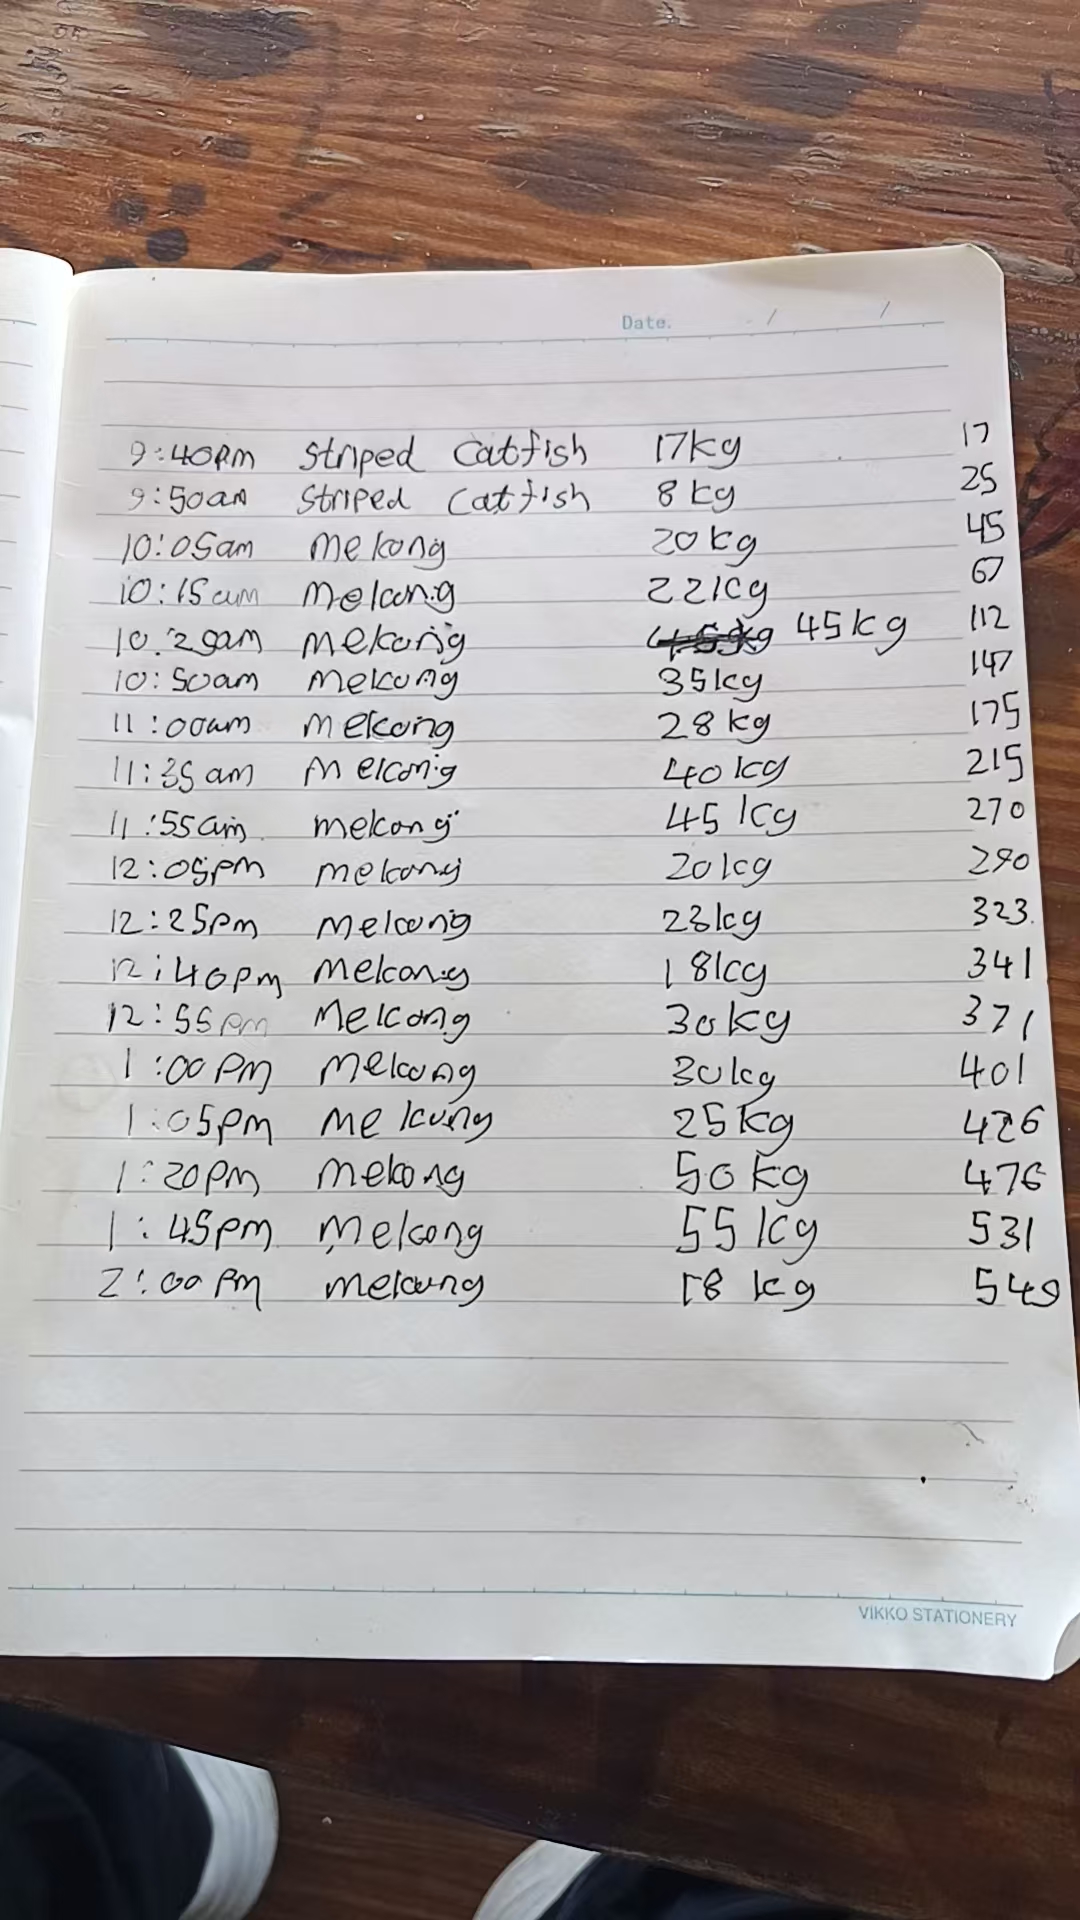 Date. / /
9:40pm Striped Catfish 17kg 17
9:50am Striped Catfish 8kg 25
10:05am mekong 20kg 45
10:15am mekong 22kg 67
10:20am mekong 45kg 112
10:50am mekong 35kg 147
11:00am mekong 28kg 175
11:35am mekong 40kg 215
11:55am mekong 45kg 270
12:05pm mekong 20kg 290
12:25pm mekong 23kg 323.
12:40pm mekong 18kg 341
12:55pm mekong 30kg 371
1:00pm mekong 30kg 401
1:05pm mekong 25kg 426
1:20pm mekong 50kg 476
1:45pm mekong 55kg 531
2:00pm mekong 18kg 549
VIKKO STATIONERY